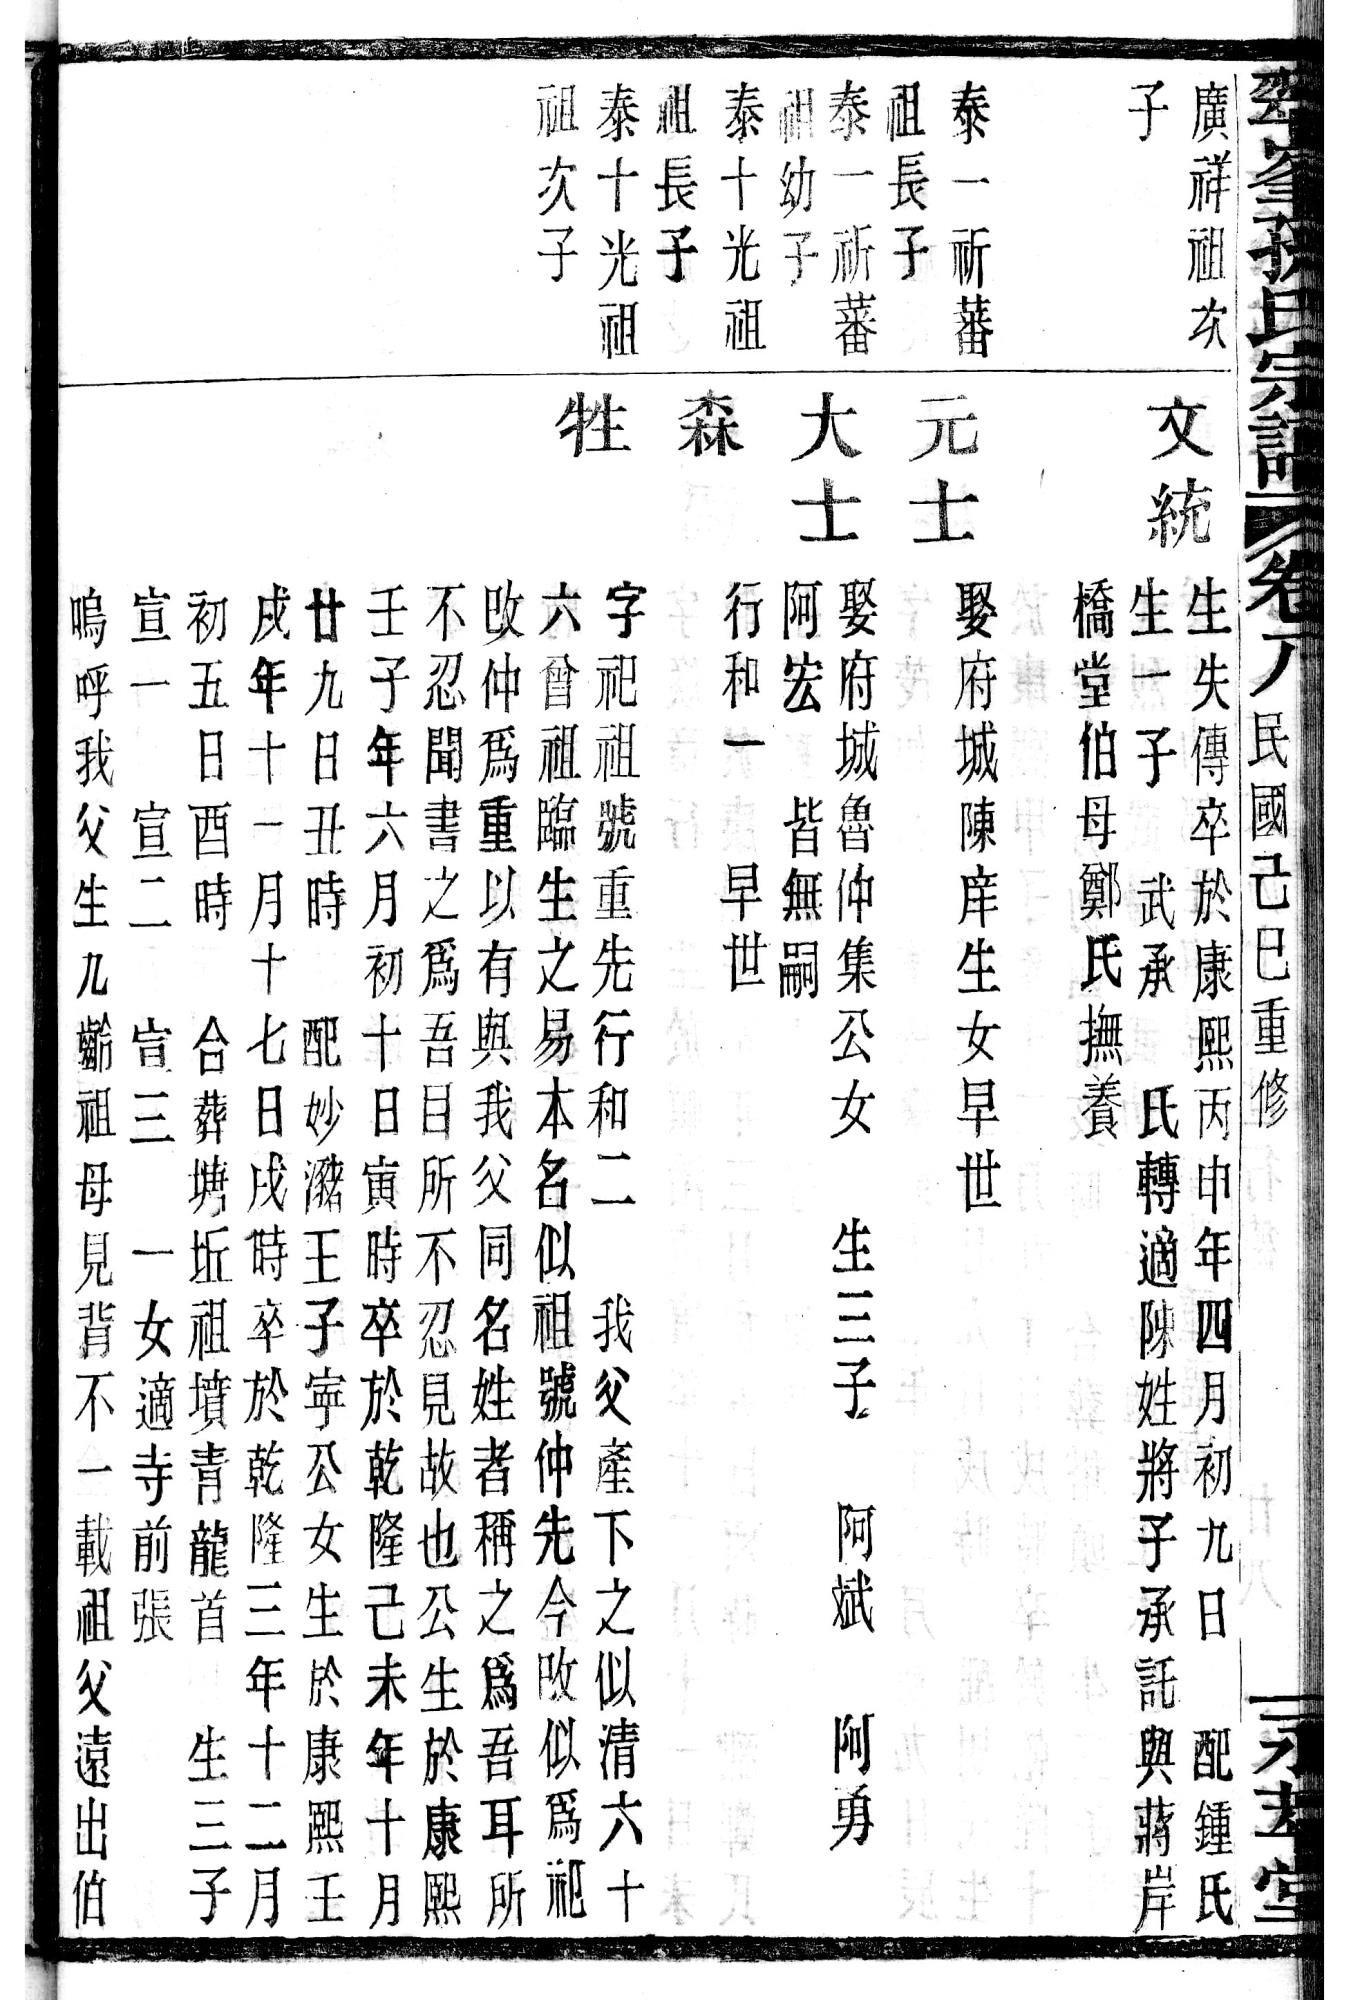 孫氏宗譜 卷八 民國己巳重修 廿八 永孝堂
廣祥祖次
子
文統
生失傳卒於康熙丙申年四月初九日 配鍾氏
生一子 武承 氏轉適陳姓將子承託與蔣岸
橋堂伯母鄭氏撫養
泰一祈蕃
祖長子
元士
娶府城陳庠生女早世
泰一祈蕃
祖幼子
大士
娶府城魯仲集公女 生三子 阿斌 阿勇
阿宏 皆無嗣
泰十光祖
祖長子
森
行和一 早世
泰十光祖
祖次子
牲
字祀祖號重先行和二 我父產下之似清六十
六曾祖臨生之易本名似祖號仲先今改似為祀
改仲爲重以有與我父同名姓者稱之爲吾耳所
不忍聞書之爲吾目所不忍見故也公生於康熙
壬子年六月初十日寅時卒於乾隆己未年十月
廿九日丑時 配妙潴王子寧公女生於康熙壬
戌年十一月十七日戌時卒於乾隆三年十二月
初五日酉時 合葬塘坵祖墳青龍首 生三子
宣一 宣二 宣三 一女適寺前張
嗚呼我父生九齡祖母見背不一載祖父遠出伯